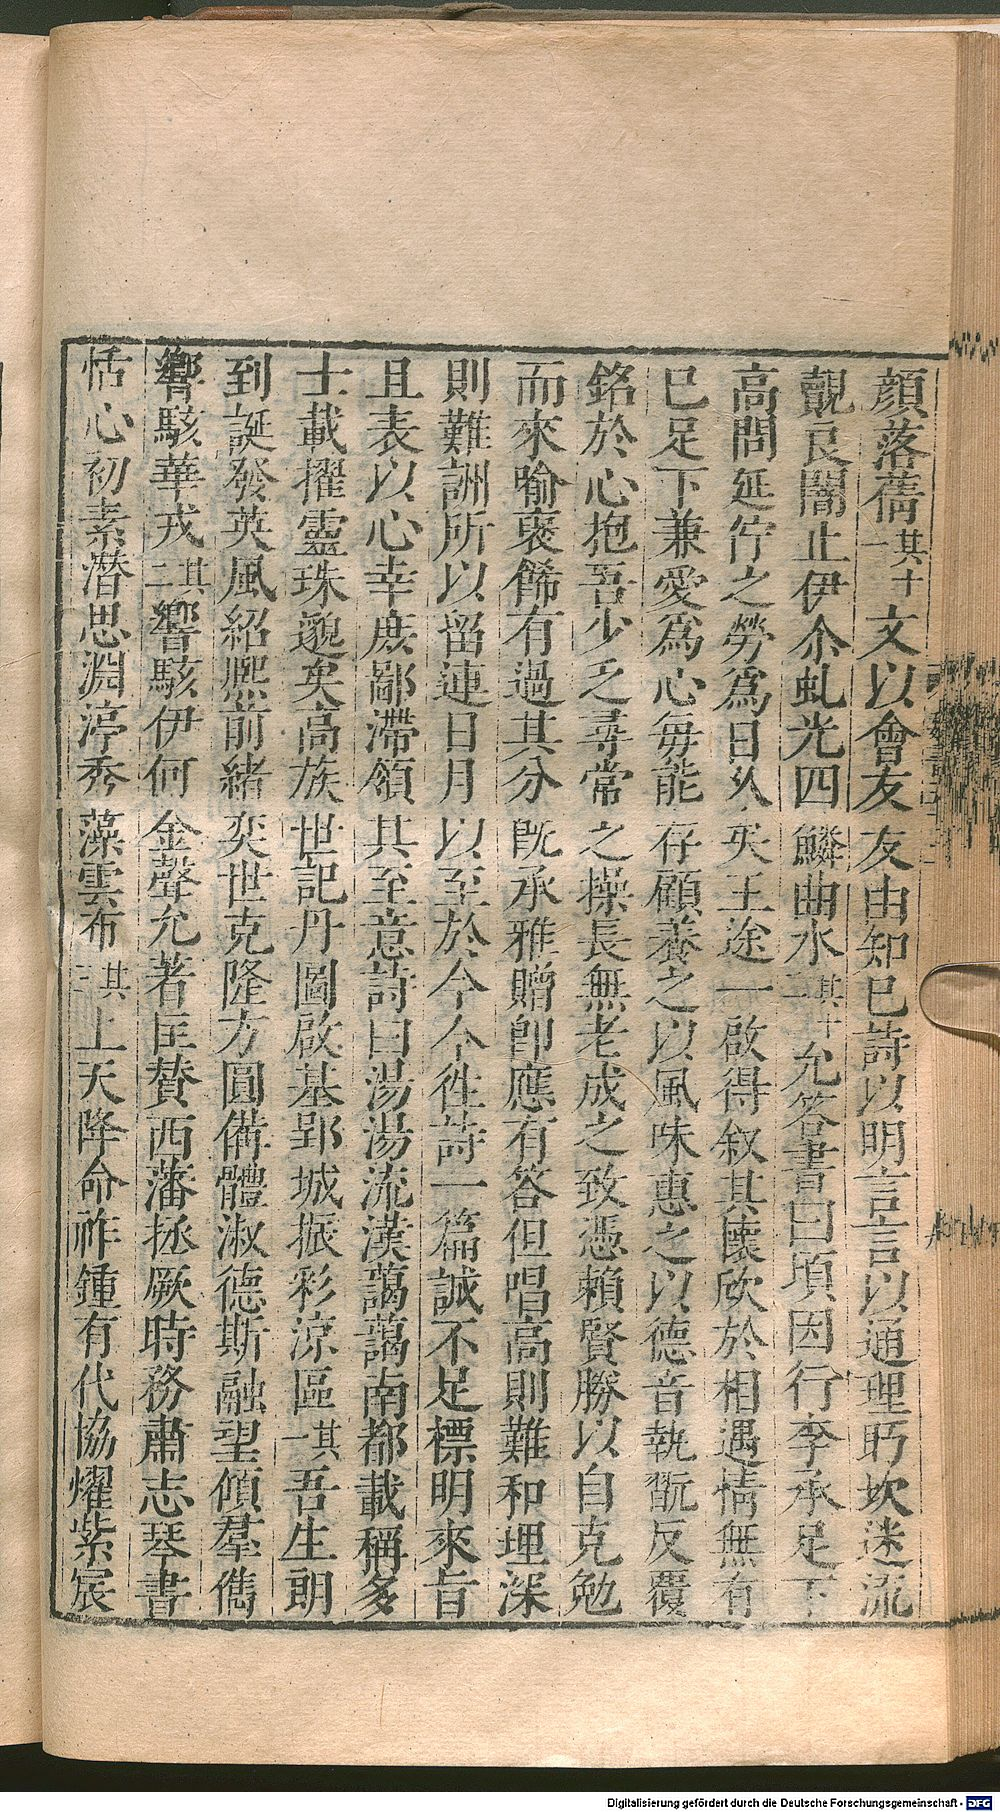 顏落蒨其十一文以會友友由知已詩以明言言以通理盻坎迷流
覿良闇止伊尒虬光四鱗曲水其十二允答書曰頃因行李承足下
高問延佇之勞爲日久矣王途一啟得叙其懷欣於相遇情無有
已足下兼愛爲心每能存顧養之以風味惠之以德音執翫反覆
銘於心抱吾少乏尋常之操長無老成之致憑賴賢勝以自克勉
而來喻褒餙有過其分旣承雅贈卽應有答但唱高則難和理深
則難詶所以留連日月以至於今今徃詩一篇誠不足標明來旨
且表以心幸庶鄙滯領其至意詩曰湯湯流漢藹藹南都載稱多
士載擢靈珠邈矣高族世記丹圖啟基郢城振彩涼區其一吾生朗
到誕發英風紹熈前緒奕世克隆方圓備體淑德斯融望傾羣儁
響駭華戎其二響駭伊何金聲允著匡贊西藩拯厥時務肅志琴書
恬心初素潛思淵渟秀藻雲布其三上天降命祚鍾有代協燿紫宸
Digitalisierung gefördert durch die Deutsche Forschungsgemeinschaft - DFG